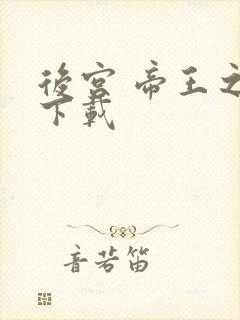 後宮 帝王之
下載
音若笛